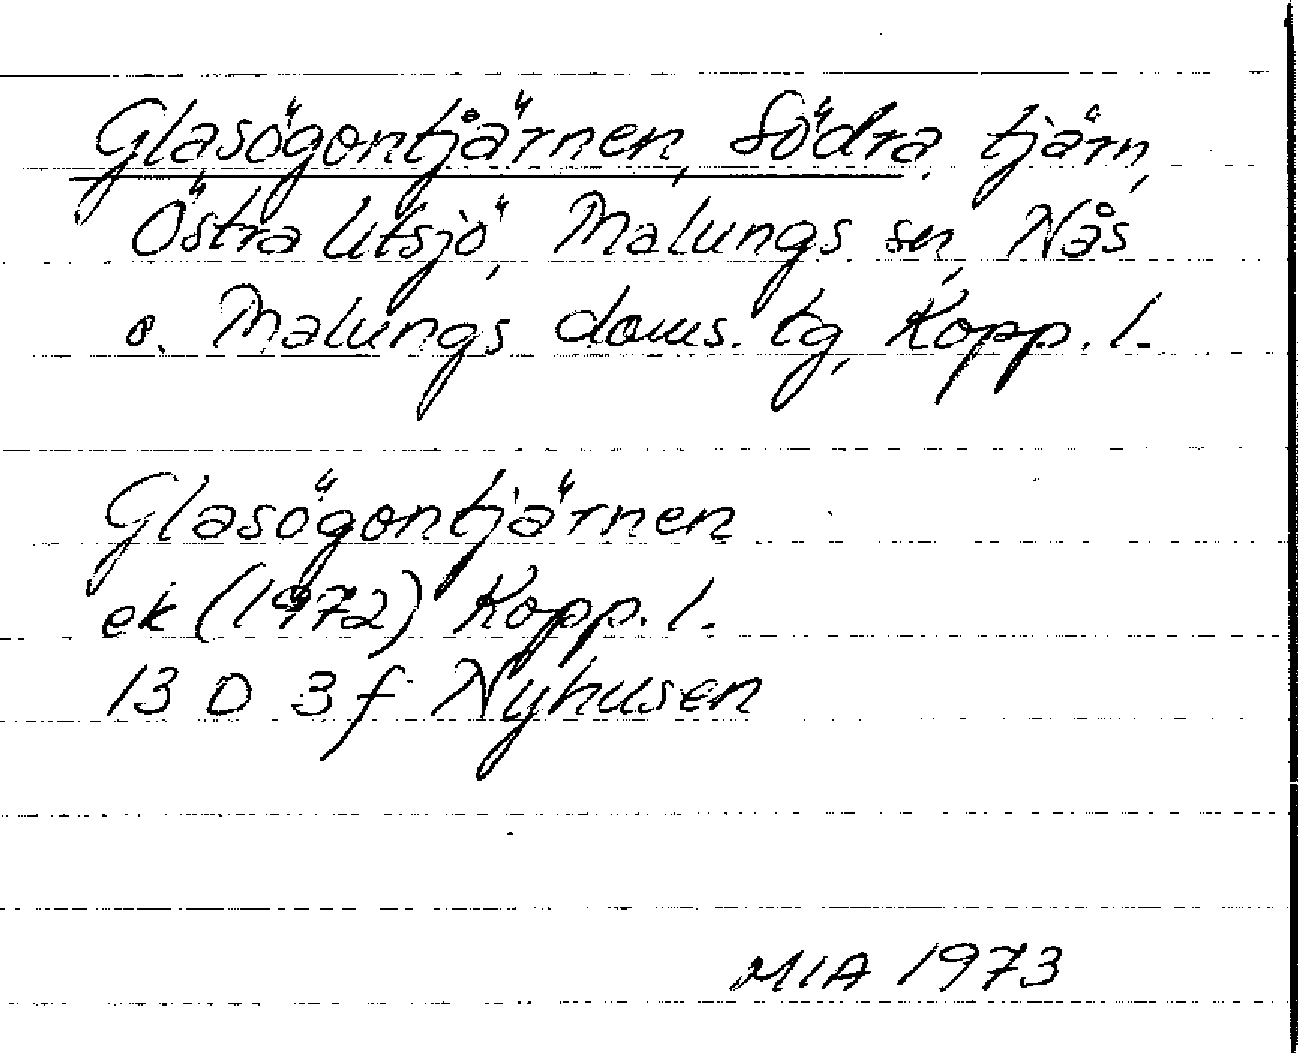 Glasögontjärnen, Södra, tjärn,
Östra Utsjö, Malungs sn, Nås
o. Malungs doms. tg, Kopp. l.
Glasögontjärnen
ek (1972) Kopp. l.
13 D 3 f Nyhusen
MIA 1973